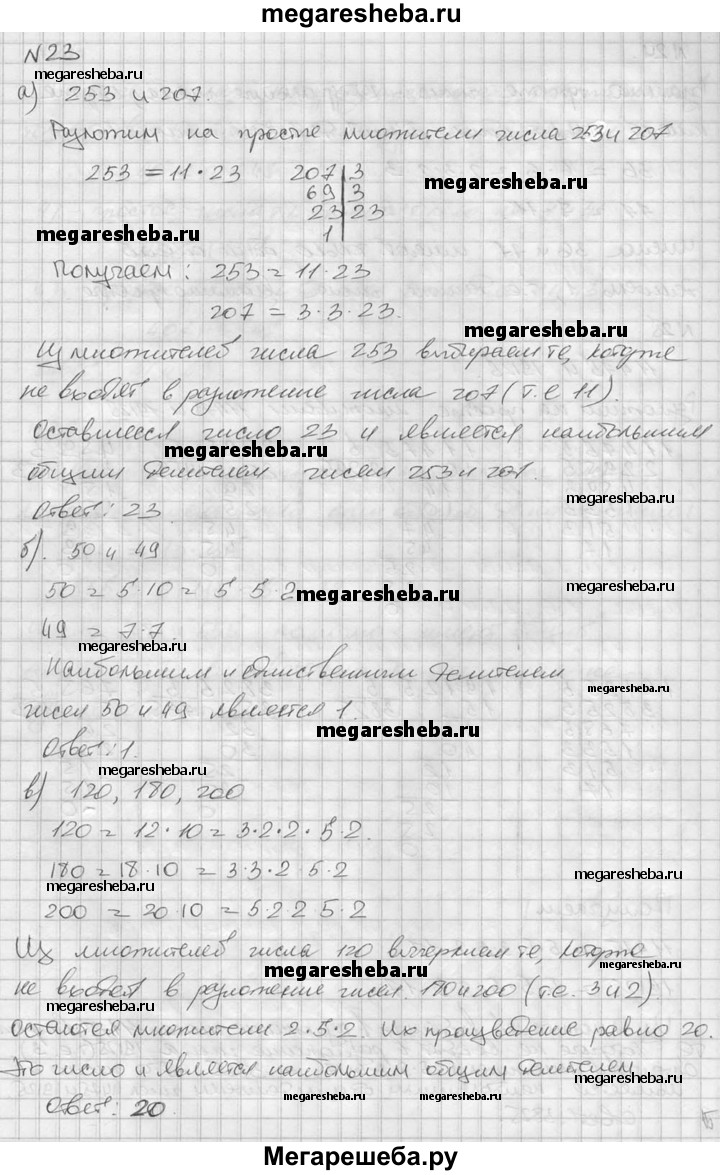 megaresheba.ru
N 23
megaresheba.ru
а) 253 и 207.
Разложим на простые множители числа 253 и 207
253 = 11 · 23 207 | 3
megaresheba.ru
69 | 3
23 | 23
megaresheba.ru
1
Получаем: 253 = 11 · 23
207 = 3 · 3 · 23.
megaresheba.ru
Из множителей числа 253 выбираем те, которые
не входят в разложение числа 207 (т.е 11).
Оставшееся число 23 и является наибольшим
megaresheba.ru
общим делителем чисел 253 и 207.
megaresheba.ru
Ответ: 23
б). 50 и 49
50 = 5 · 10 = 5 · 5 · 2
megaresheba.ru
megaresheba.ru
49 = 7 · 7.
megaresheba.ru
Наибольшим и единственным делителем
megaresheba.ru
чисел 50 и 49 является 1.
megaresheba.ru
Ответ: 1.
megaresheba.ru
в) 120, 180, 200
120 = 12 · 10 = 3 · 2 · 2 · 5 · 2.
180 = 18 · 10 = 3 · 3 · 2 · 5 · 2
megaresheba.ru
200 = 20 · 10 = 5 · 2 2 5 · 2
Из множителей числа 120 вычеркнем те, которые
megaresheba.ru
megaresheba.ru
не входят в разложение чисел 180 и 200 (т.е. 3 и 2)
megaresheba.ru
Остаются множители 2 · 5 · 2. Их произведение равно 20.
Это число и является наибольшим общим делителем
megaresheba.ru
megaresheba.ru
megaresheba.ru
Ответ: 20.
Мегарешеба.ру